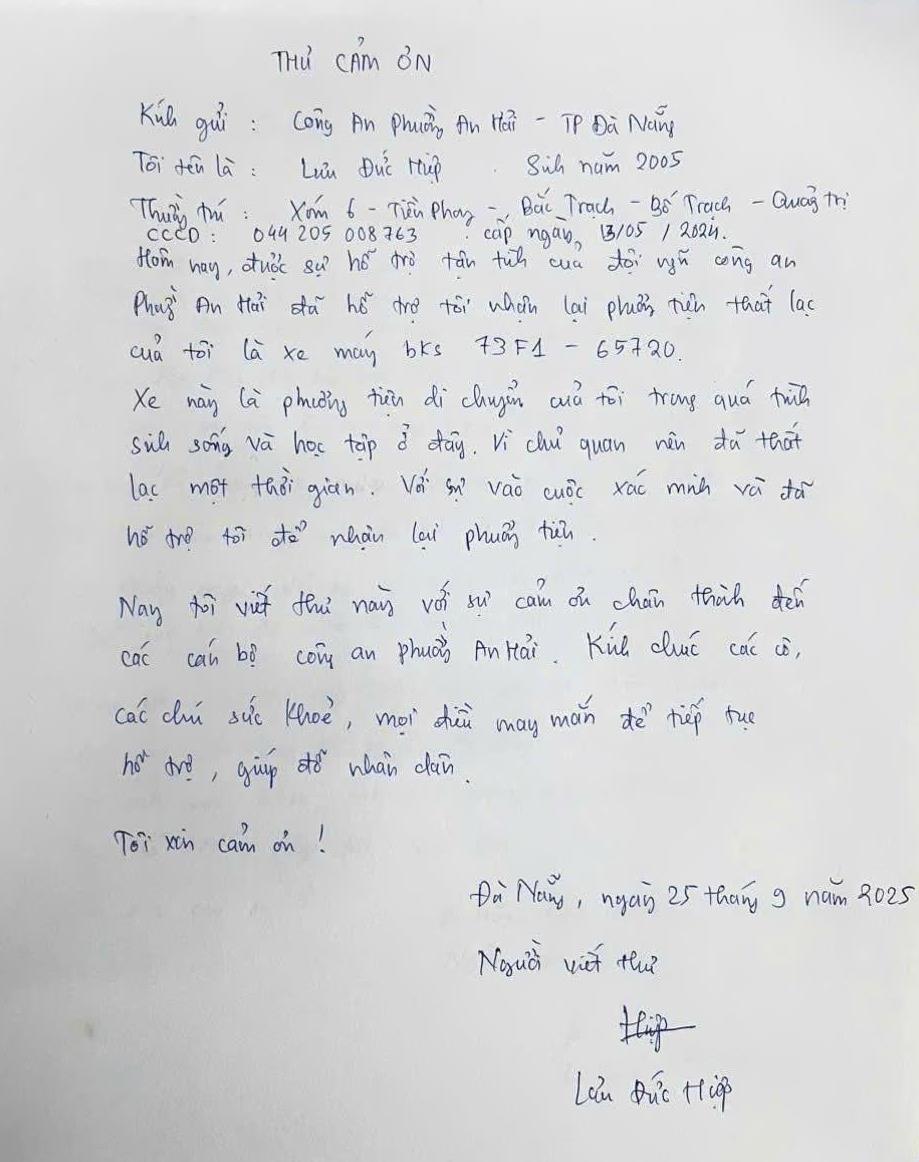 THƯ CẢM ƠN
Kính gửi : Công An Phường An Hải - TP Đà Nẵng
Tôi tên là : Lưu Đức Hiệp . Sinh năm 2005
Thường trú : Xóm 6 - Tiền Phong - Bắc Trạch - Bố Trạch - Quảng trị
CCCD : 044 205 008 763 . cấp ngày 13/05 / 2024.
Hôm nay, được sự hỗ trợ tận tình của đội ngũ công an
Phường An Hải đã hỗ trợ tôi nhận lại phương tiện thất lạc
của tôi là xe máy bks 73F1 - 65720.
Xe này là phương tiện di chuyển của tôi trong quá trình
sinh sống và học tập ở đây. Vì chủ quan nên đã thất
lạc một thời gian. Với sự vào cuộc xác minh và đã
hỗ trợ tôi để nhận lại phương tiện.
Nay tôi viết thư này với sự cảm ơn chân thành đến
các cán bộ công an phường An Hải. Kính chúc các cô,
các chú sức khoẻ, mọi điều may mắn để tiếp tục
hỗ trợ, giúp đỡ nhân dân.
Tôi xin cảm ơn !
Đà Nẵng, ngày 25 tháng 9 năm 2025
Người viết thư
Hiệp
Lưu Đức Hiệp